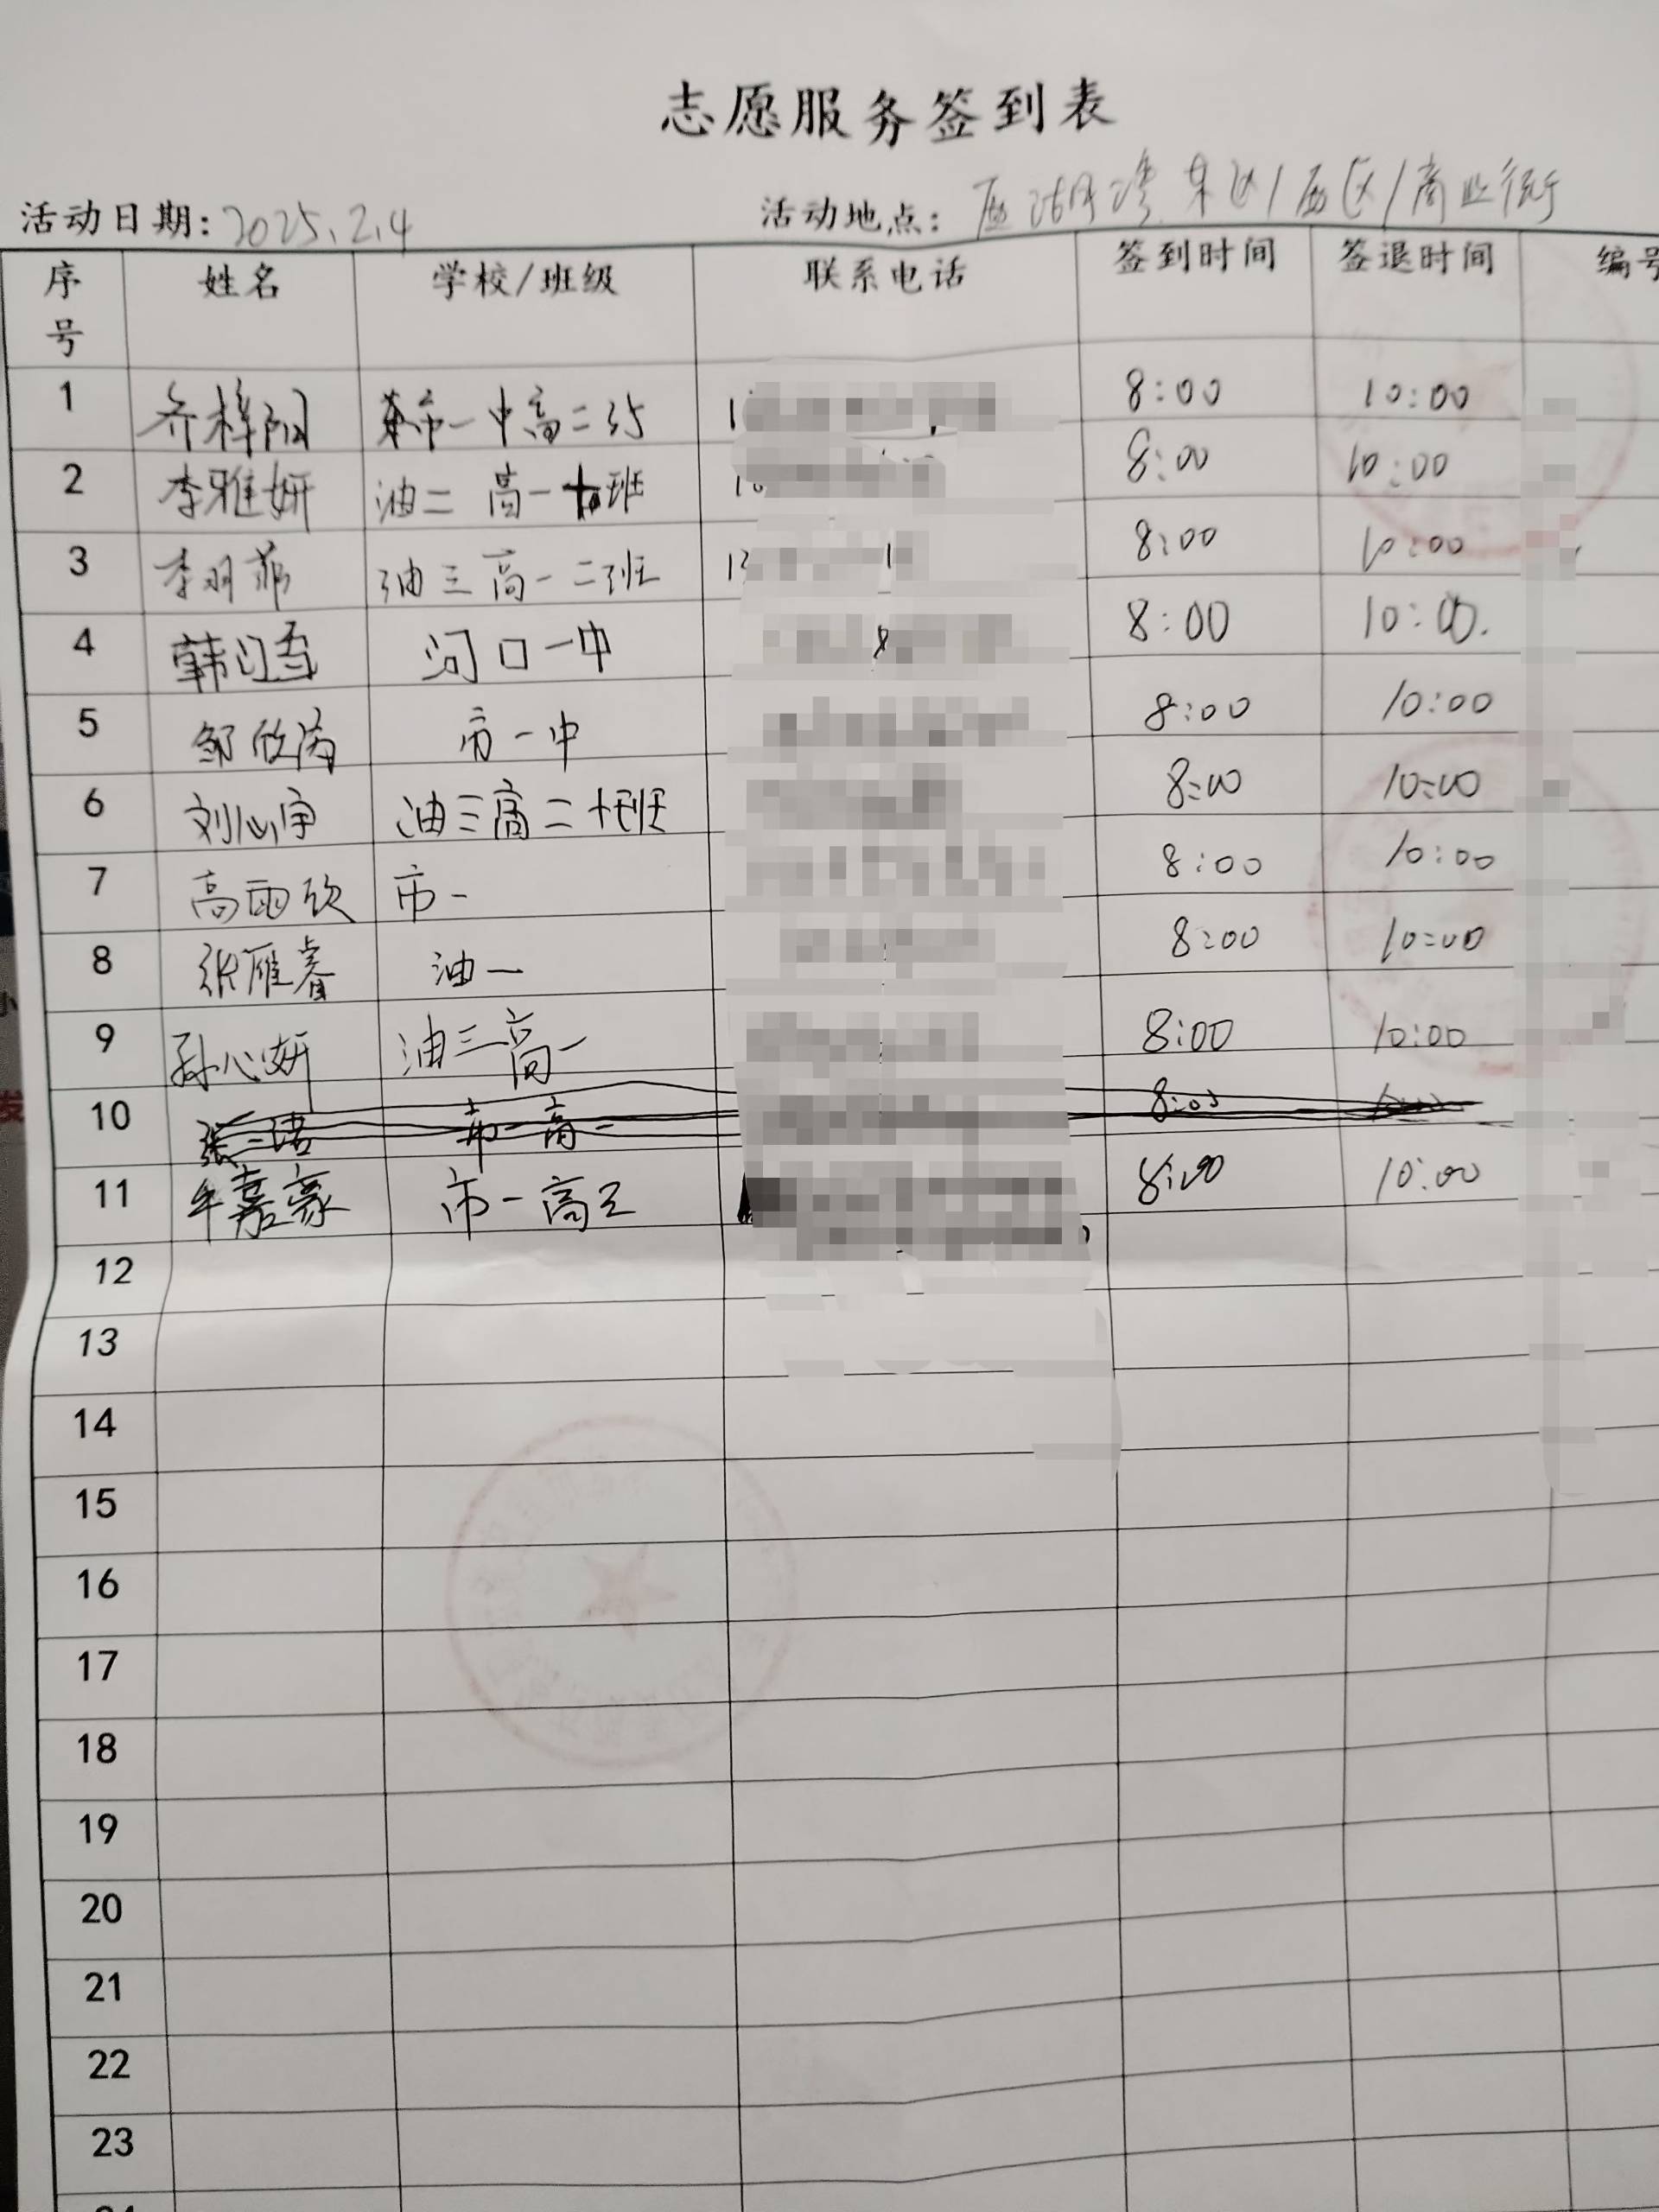 志愿服务签到表
活动日期: 2025.2.4 活动地点: 西湖湾东区/西区/商业街
序号 姓名 学校/班级 联系电话 签到时间 签退时间 编号
1 乔梓阳 市一中高二 8:00 10:00
2 李雅妍 油二 高一 班 8:00 10:00
3 李羽菲 油三高一二班 8:00 10:00
4 韩 河口一中 8:00 10:00.
5 邹欣 市一中 8:00 10:00
6 刘心宇 油三高二十班 8:00 10:00
7 高雨欣 市一 8:00 10:00
8 张雁睿 油一 8:00 10:00
9 孙心妍 油三高一 8:00 10:00
10 张 市一高一 8:00
11 牛嘉豪 市一高三 8:00 10:00
12
13
14
15
16
17
18
19
20
21
22
23